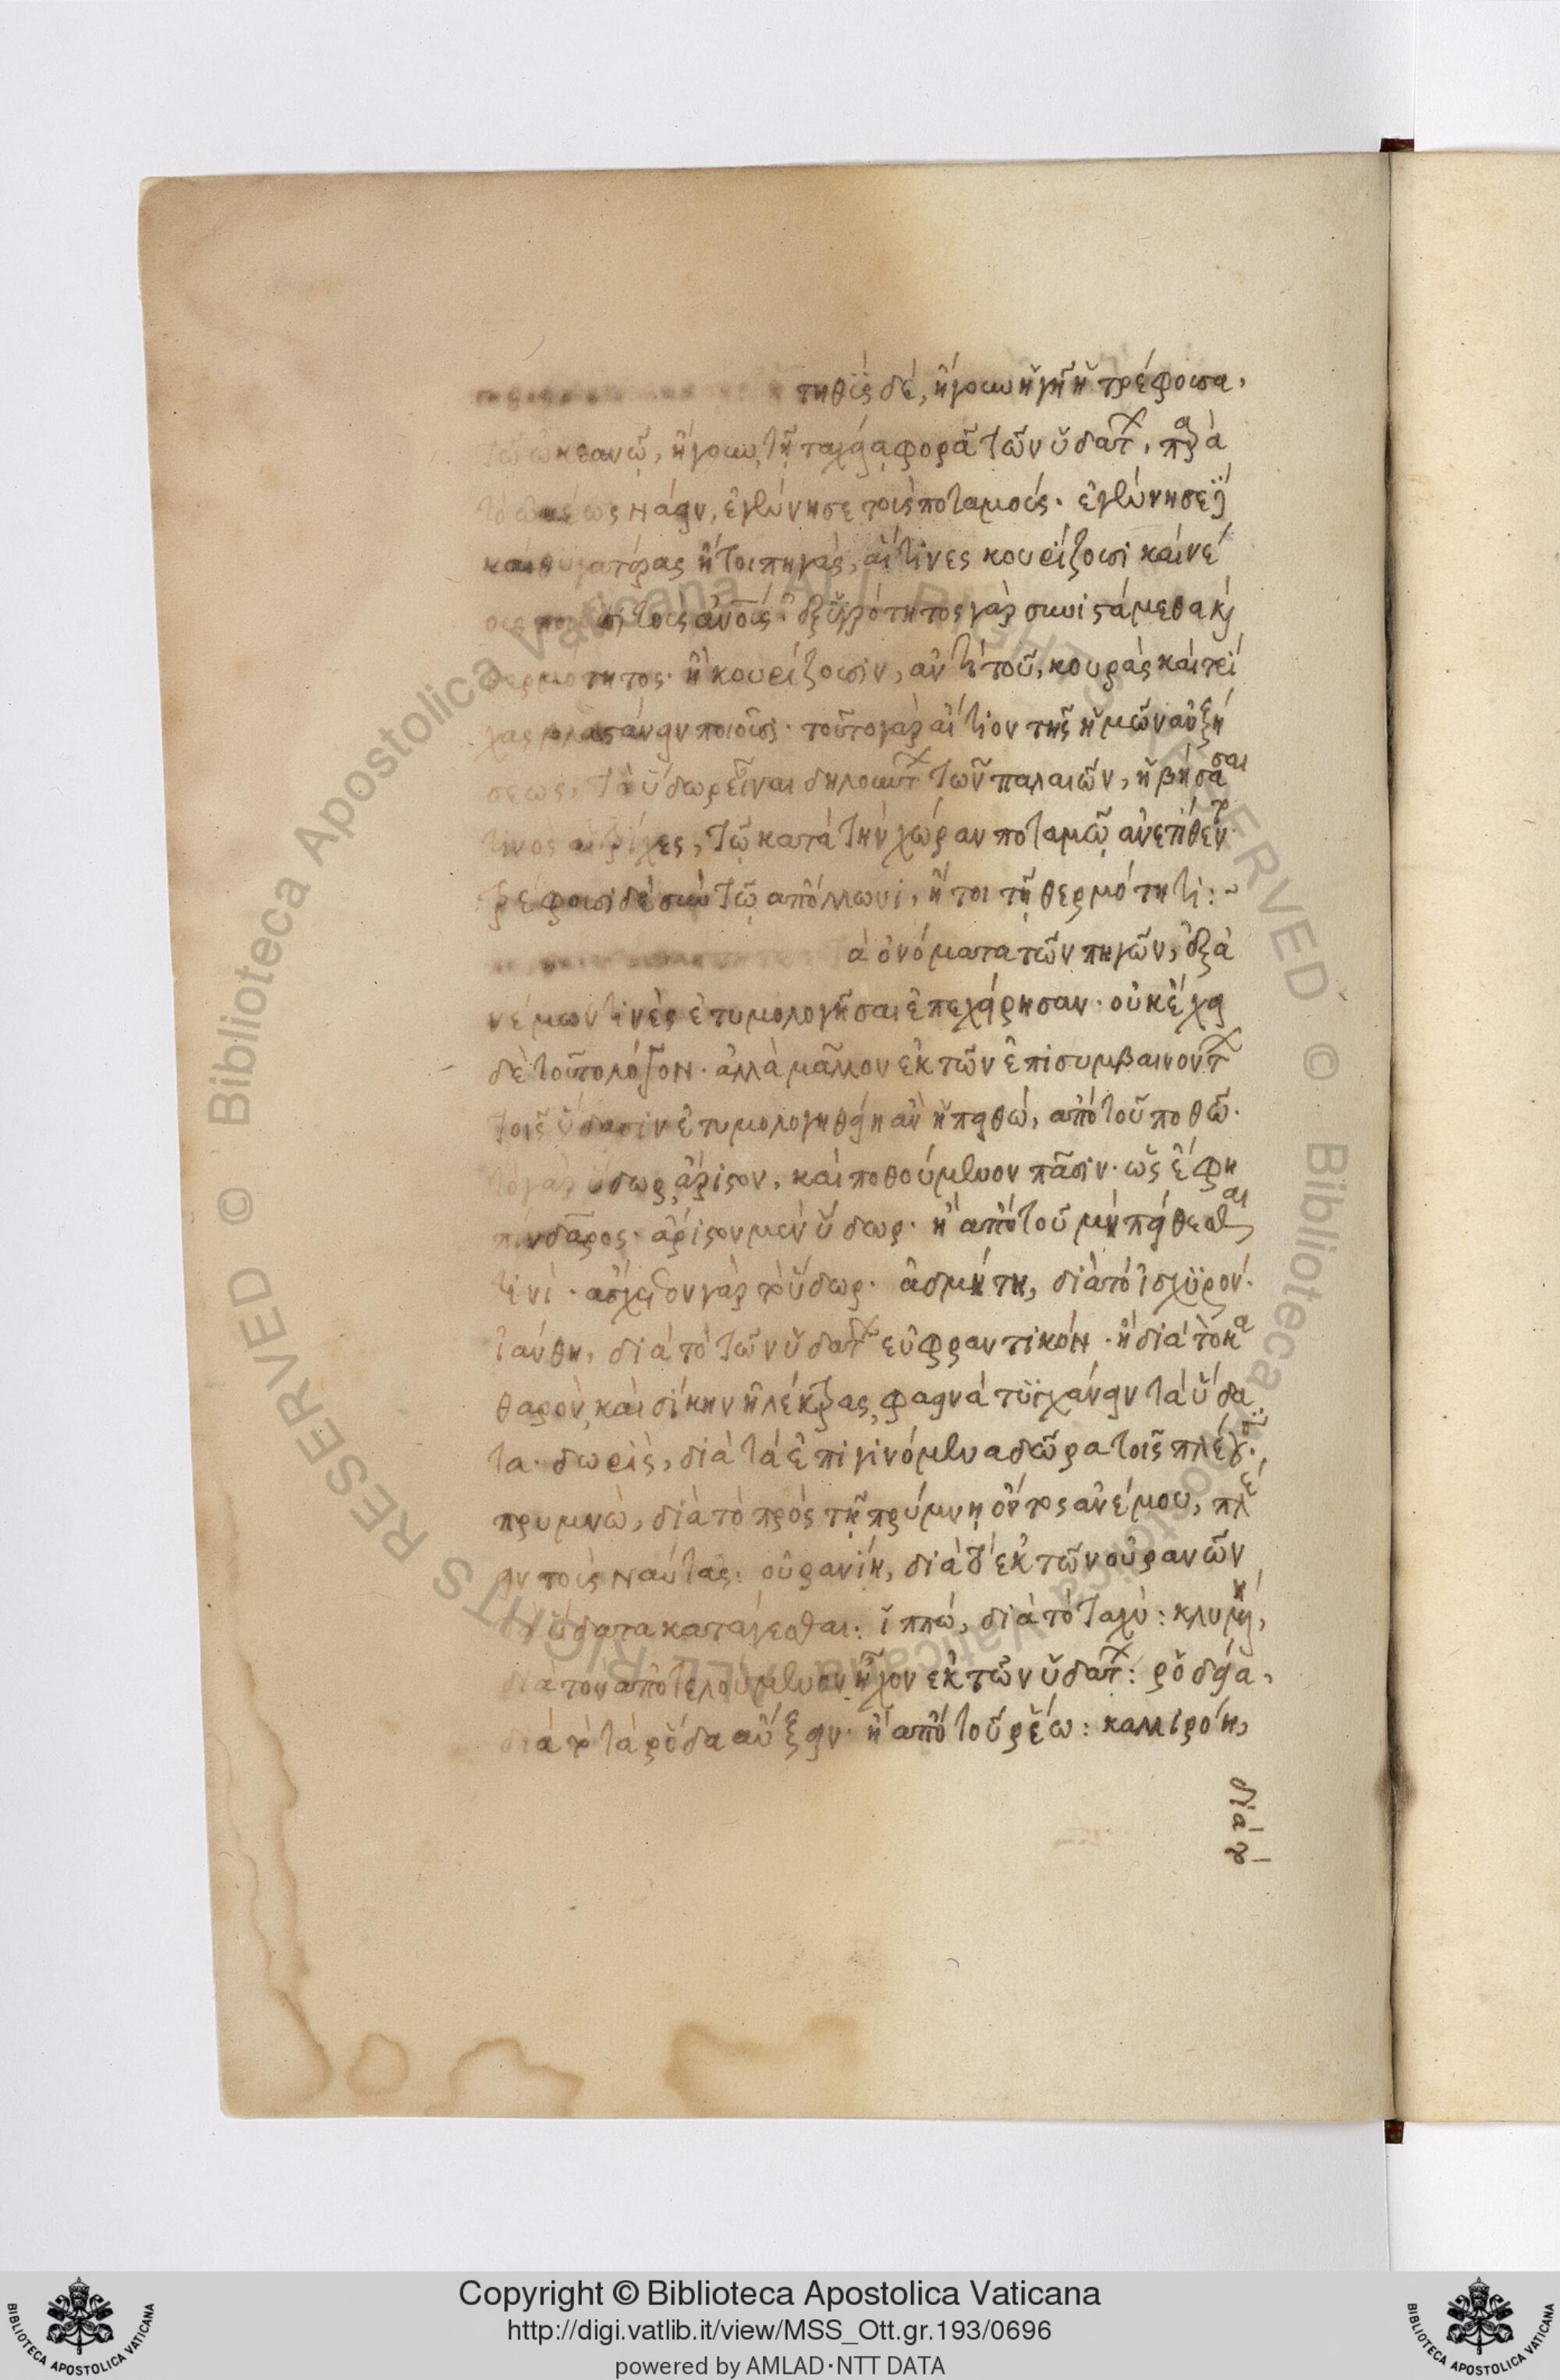 τηθὺς δέ, ἤγουν ἡ γῆ ἡ τρέφουσα,
τῷ ὠκεανῷ, ἤγουν τῇ ταχείᾳ φορᾷ τῶν ὑδάτ, παρὰ
τὸ ὠκέως νάειν, ἐγέννησε τοὺς ποταμούς. ἐγέννησε δὲ
καὶ θυγατέρας ἤτοι πηγὰς, αἵτινες κουρίζουσι καὶ νέ
ους ποιοῦσι τοὺς ἀνους. ἐξ ὑγρότητος γὰρ συνιστάμεθα καὶ
θερμότητος. ἢ κουρίζουσιν, ἀντὶ τοῦ, κουρὰς καὶ τρί
χας βλαστάνειν ποιοῦσι. τοῦτο γὰρ αἴτιον τῆς ἡμῶν αὐξή
σεως, τὸ ὕδωρ εἶναι δηλοῦντ τῶν παλαιῶν, ἡβήσα
τινὸς αἱ τρίχες, τῷ κατὰ τὴν χώραν ποταμῷ ἀνετίθεντο.
τρέφουσι δὲ σὺν τῷ ἀπόλλωνι, ἤτοι τῇ θερμότητι:~
ὰ ὀνόματα τῶν πηγῶν, ἐξ ἀ
νέμων τινὲς ἐτυμολογῆσαι ἐπεχείρησαν. οὐκ ἔχει
δὲ τοῦτο λόγον. ἀλλὰ μᾶλλον ἐκ τῶν ἐπισυμβαινόντ
τοῖς ὕδασιν ἐτυμολογηθείη ἂν ἡ πειθώ, ἀπὸ τοῦ ποθῶ.
τὸ γὰρ ὕδωρ ἄριστον, καὶ ποθούμενον πᾶσιν. ὡς ἔφη
πίνδαρος. ἄριστον μὲν ὕδωρ. ἢ ἀπὸ τοῦ μὴ πείθεσθαι
τινί. ἄσχετον γὰρ τὸ ὕδωρ. ἀδμήτη, διὰ τὸ ἰσχυρόν.
ἰάνθη, διὰ τὸ τῶν ὑδάτ εὐφραντικόν. ἢ διὰ τὸ κα
θαρὸν, καὶ δίκην ἠλέκτρας, φαεινὰ τυγχάνειν τὰ ὕδα
τα. δωρὶς, διὰ τὰ ἐπιγινόμενα δῶρα τοῖς πλέουσι.
πρυμνὼ, διὰ τὸ πρὸς τῇ πρύμνῃ ὄντος ἀνέμου, πλέ
ειν τοὺς ναύτας: οὐρανίη, διὰ τὸ ἐκ τῶν οὐρανῶν
τὰ ὕδατα κατάγεσθαι: ἱππώ, διὰ τὸ ταχύ: κλυμένη,
διὰ τὸν ἀποτελούμενον ἦχον ἐκ τῶν ὑδάτ: ῥόδεια,
διὰ τὸ τὰ ῥόδα αὔξειν. ἢ ἀπὸ τοῦ ῥέω: καλλιρόη,
διὰ τὸ
Copyright © Biblioteca Apostolica Vaticana
http://digi.vatlib.it/view/MSS_Ott.gr.193/0696
powered by AMLAD·NTT DATA